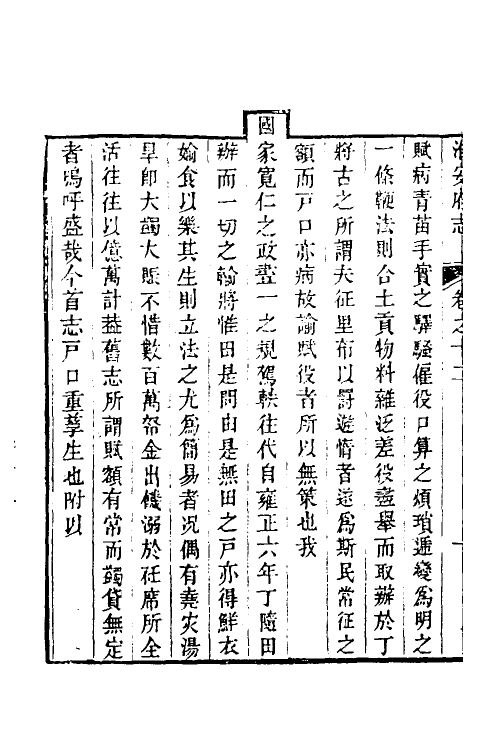 淮安府志 卷之十二
賦病青苗手實之驛騷僱役口算之煩瑣遞變爲明之
一條鞭法則合土貢物料雜泛差役盡舉而取辦於丁
將古之所謂夫征里布以罰遊惰者遂爲斯民常征之
額而戸口亦病故論賦役者所以無策也我
國家寬仁之政畫一之規駕軼往代自雍正六年丁隨田
辦而一切之輸將惟田是問由是無田之戸亦得鮮衣
媮食以樂其生則立法之尤爲簡易者况偶有堯灾湯
旱卽大蠲大賑不惜數百萬帑金出饑溺於袵席所全
活往往以億萬計葢舊志所謂賦額有常而蠲貸無定
者嗚呼盛哉今首志戸口重孳生也附以